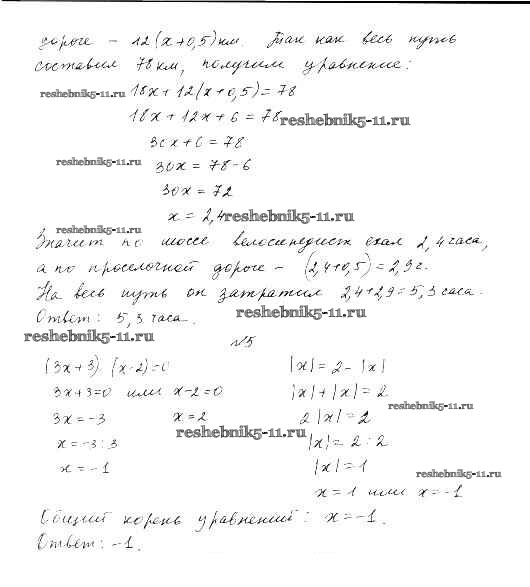 дороге – 12(x+0,5) км. Так как весь путь
составил 78 км, получим уравнение:
reshebnik5-11.ru 18x+12(x+0,5)=78
18x+12x+6=78 reshebnik5-11.ru
30x+6=78
reshebnik5-11.ru 30x=78-6
30x=72
x=2,4 reshebnik5-11.ru
reshebnik5-11.ru
Значит по шоссе велосипедист ехал 2,4 часа,
а по проселочной дороге – (2,4+0,5)=2,9 ч.
На весь путь он затратил 2,4+2,9=5,3 часа.
Ответ: 5,3 часа. reshebnik5-11.ru
reshebnik5-11.ru
№5
(3x+3)(x-2)=0
3x+3=0 или x-2=0
3x=-3 x=2
reshebnik5-11.ru
x=-3:3
x=-1
|x|=2-|x|
|x|+|x|=2
reshebnik5-11.ru
2|x|=2
|x|=2:2
|x|=1
reshebnik5-11.ru
x=1 или x=-1
Общий корень уравнений: x=-1.
Ответ: -1.